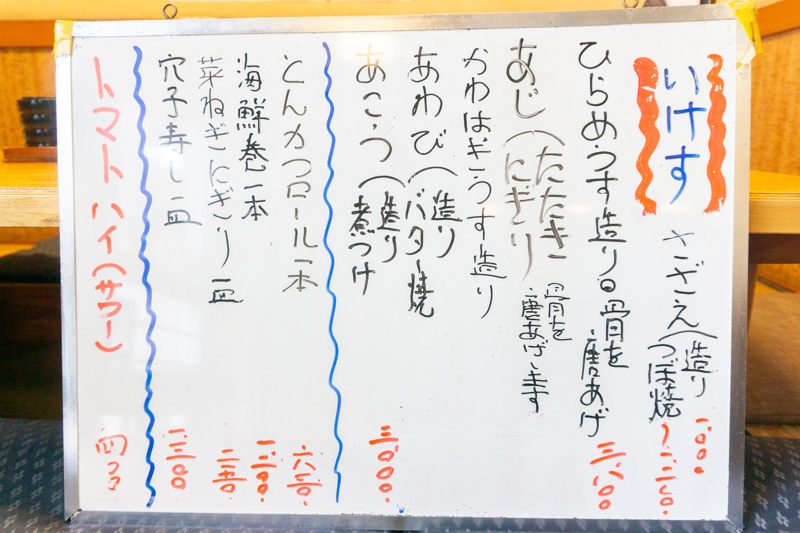 いけす
さざえ(造り
つぼ焼
一、〇〇〇
ひらめうす造り。骨を
唐あげ
三、八〇〇
あじ(たたき
にぎり
骨を
唐あげします
かわはぎうす造り
あわび(造り
バター焼
あこう(造り
煮つけ
三、〇〇〇
とんかつロール一本
六三〇
海鮮巻一本
菜ねぎにぎり一皿
穴子寿し一皿
トマトハイ(サワー)